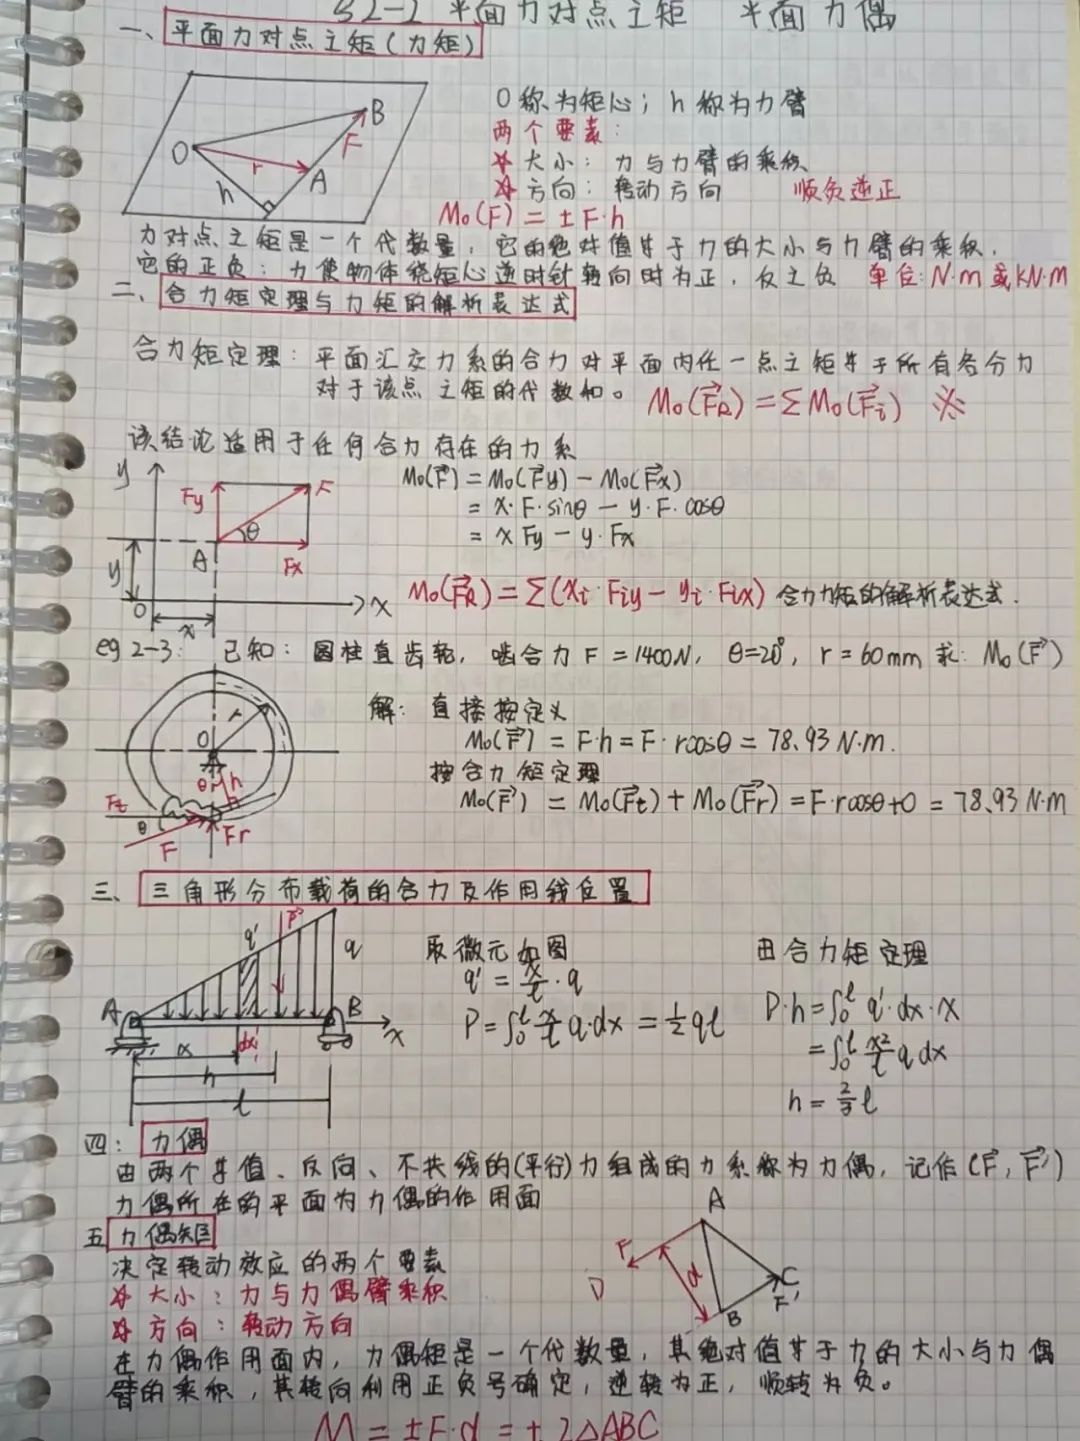 §2-2 平面力对点之矩 平面力偶
一、平面力对点之矩(力矩)
O B F r A h
O称为矩心；h称为力臂
两个要素：
☆大小：力与力臂的乘积
☆方向：转动方向 顺负逆正
Mo(F)=±F·h
力对点之矩是一个代数量，它的绝对值等于力的大小与力臂的乘积.
它的正负：力使物体绕矩心逆时针转向时为正，反之负 单位:N·m或kN·m
二、合力矩定理与力矩的解析表达式
合力矩定理：平面汇交力系的合力对平面内任一点之矩等于所有各分力
对于该点之矩的代数和。 Mo(F⃗R)=ΣMo(F⃗i) ※
该结论适用于任何合力存在的力系
y Fy F θ A Fx y O x x
Mo(F⃗)=Mo(F⃗y)-Mo(F⃗x)
=x·F·sinθ-y·F·cosθ
=xFy-y·Fx
Mo(F⃗R)=Σ(xi·Fiy-yi·Fix) 合力力矩的解析表达式.
eg 2-3: 已知：圆柱直齿轮，啮合力F=1400N，θ=20°，r=60mm 求：Mo(F⃗)
r O θ h Ft θ F Fr
解：直接按定义
Mo(F⃗)=F·h=F·rcosθ=78.93N·m.
按合力矩定理
Mo(F⃗)=Mo(F⃗t)+Mo(F⃗r)=F·rcosθ+0=78.93N·m
三、三角形分布载荷的合力及作用线位置
q' P q A B x x dx h l
取微元如图
q'=x/l·q
P=∫₀ˡ x/l q·dx=1/2 ql
由合力矩定理
P·h=∫₀ˡ q'·dx·x
=∫₀ˡ x²/l q dx
h=2/3 l
四：力偶
由两个等值、反向、不共线的(平行)力组成的力系称为力偶，记作(F⃗,F⃗')
力偶所在的平面为力偶的作用面
五 力偶矩
决定转动效应的两个要素
☆大小：力与力偶臂乘积
☆方向：转动方向
A F D d C F' B
在力偶作用面内，力偶矩是一个代数量，其绝对值等于力的大小与力偶
臂的乘积，其转向利用正负号确定，逆转为正，顺转为负。
M=±F·d=±2△ABC